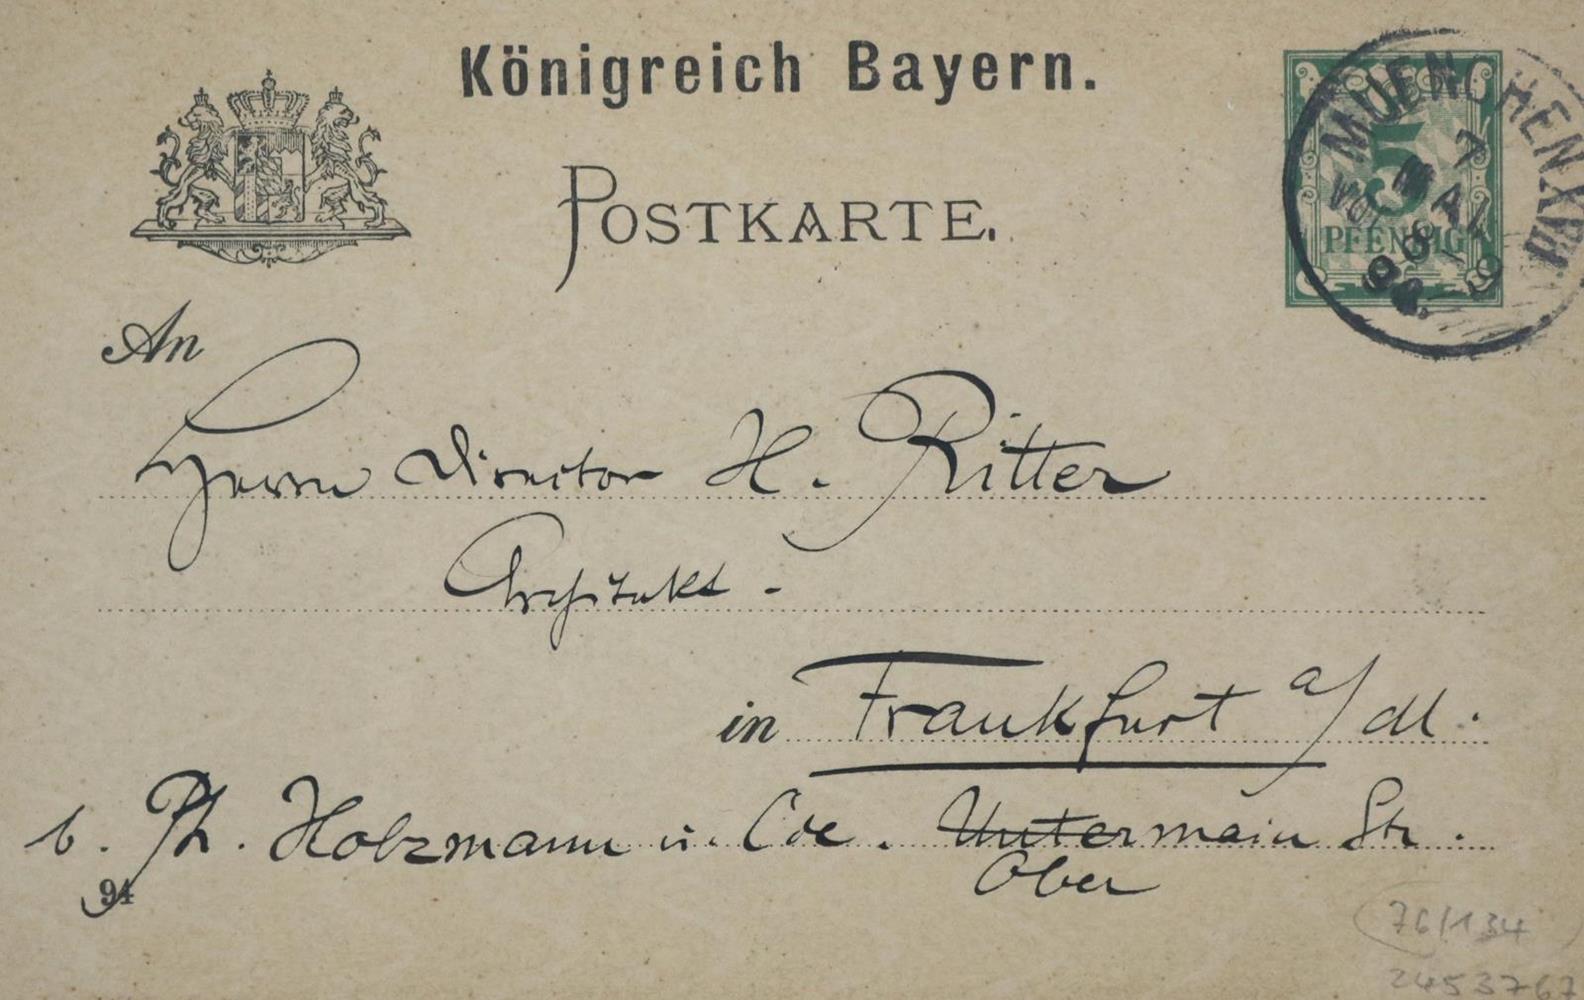 Königreich Bayern.
POSTKARTE.
5
PFENNIG
MUENCHEN XVIII
7
MAI
An
Herrn Director H. Ritter
Architekt -
in Frankfurt a/M.
b. Ph. Holzmann u. Cie. Untermain Str.
Ober
94
76/134
2453767